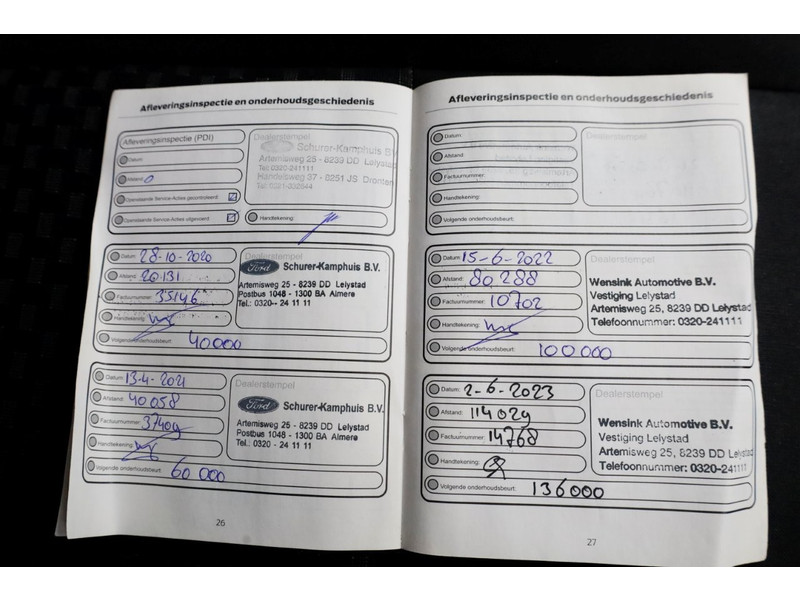 Afleveringsinspectie en onderhoudsgeschiedenis
Afleveringsinspectie (PDI)
Datum:
Afstand: 0
Openstaande Service-Acties gecontroleerd
Openstaande Service-Acties uitgevoerd
Dealerstempel
Schurer-Kamphuis B.V.
Artemisweg 25 - 8239 DD Lelystad
Tel: 0320-241111
Handelsweg 37 - 8251 JS Dronten
Handtekening:
Datum: 28-10-2020
Afstand: 20131
Factuurnummer: 35146
Handtekening:
Volgende onderhoudsbeurt: 40000
Dealerstempel
Ford Schurer-Kamphuis B.V.
Artemisweg 25 - 8239 DD Lelystad
Postbus 1048 - 1300 BA Almere
Tel.: 0320 - 24 11 11
Datum: 13-4-2021
Afstand: 40058
Factuurnummer: 37409
Handtekening:
Volgende onderhoudsbeurt: 60 000
Dealerstempel
Ford Schurer-Kamphuis B.V.
Artemisweg 25 - 8239 DD Lelystad
Postbus 1048 - 1300 BA Almere
Tel.: 0320 - 24 11 11
26
Afleveringsinspectie en onderhoudsgeschiedenis
Datum:
Afstand:
Factuurnummer:
Handtekening:
Volgende onderhoudsbeurt:
Datum: 15-6-2022
Afstand: 80288
Factuurnummer: 10702
Handtekening:
Volgende onderhoudsbeurt: 100 000
Dealerstempel
Wensink Automotive B.V.
Vestiging Lelystad
Artemisweg 25, 8239 DD Lelystad
Telefoonnummer: 0320-241111
Datum: 2-6-2023
Afstand: 114029
Factuurnummer: 14768
Handtekening:
Volgende onderhoudsbeurt: 136000
Dealerstempel
Wensink Automotive B.V.
Vestiging Lelystad
Artemisweg 25, 8239 DD Lelystad
Telefoonnummer: 0320-241111
27